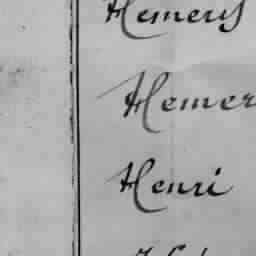 Hemery
Hemer
Henri